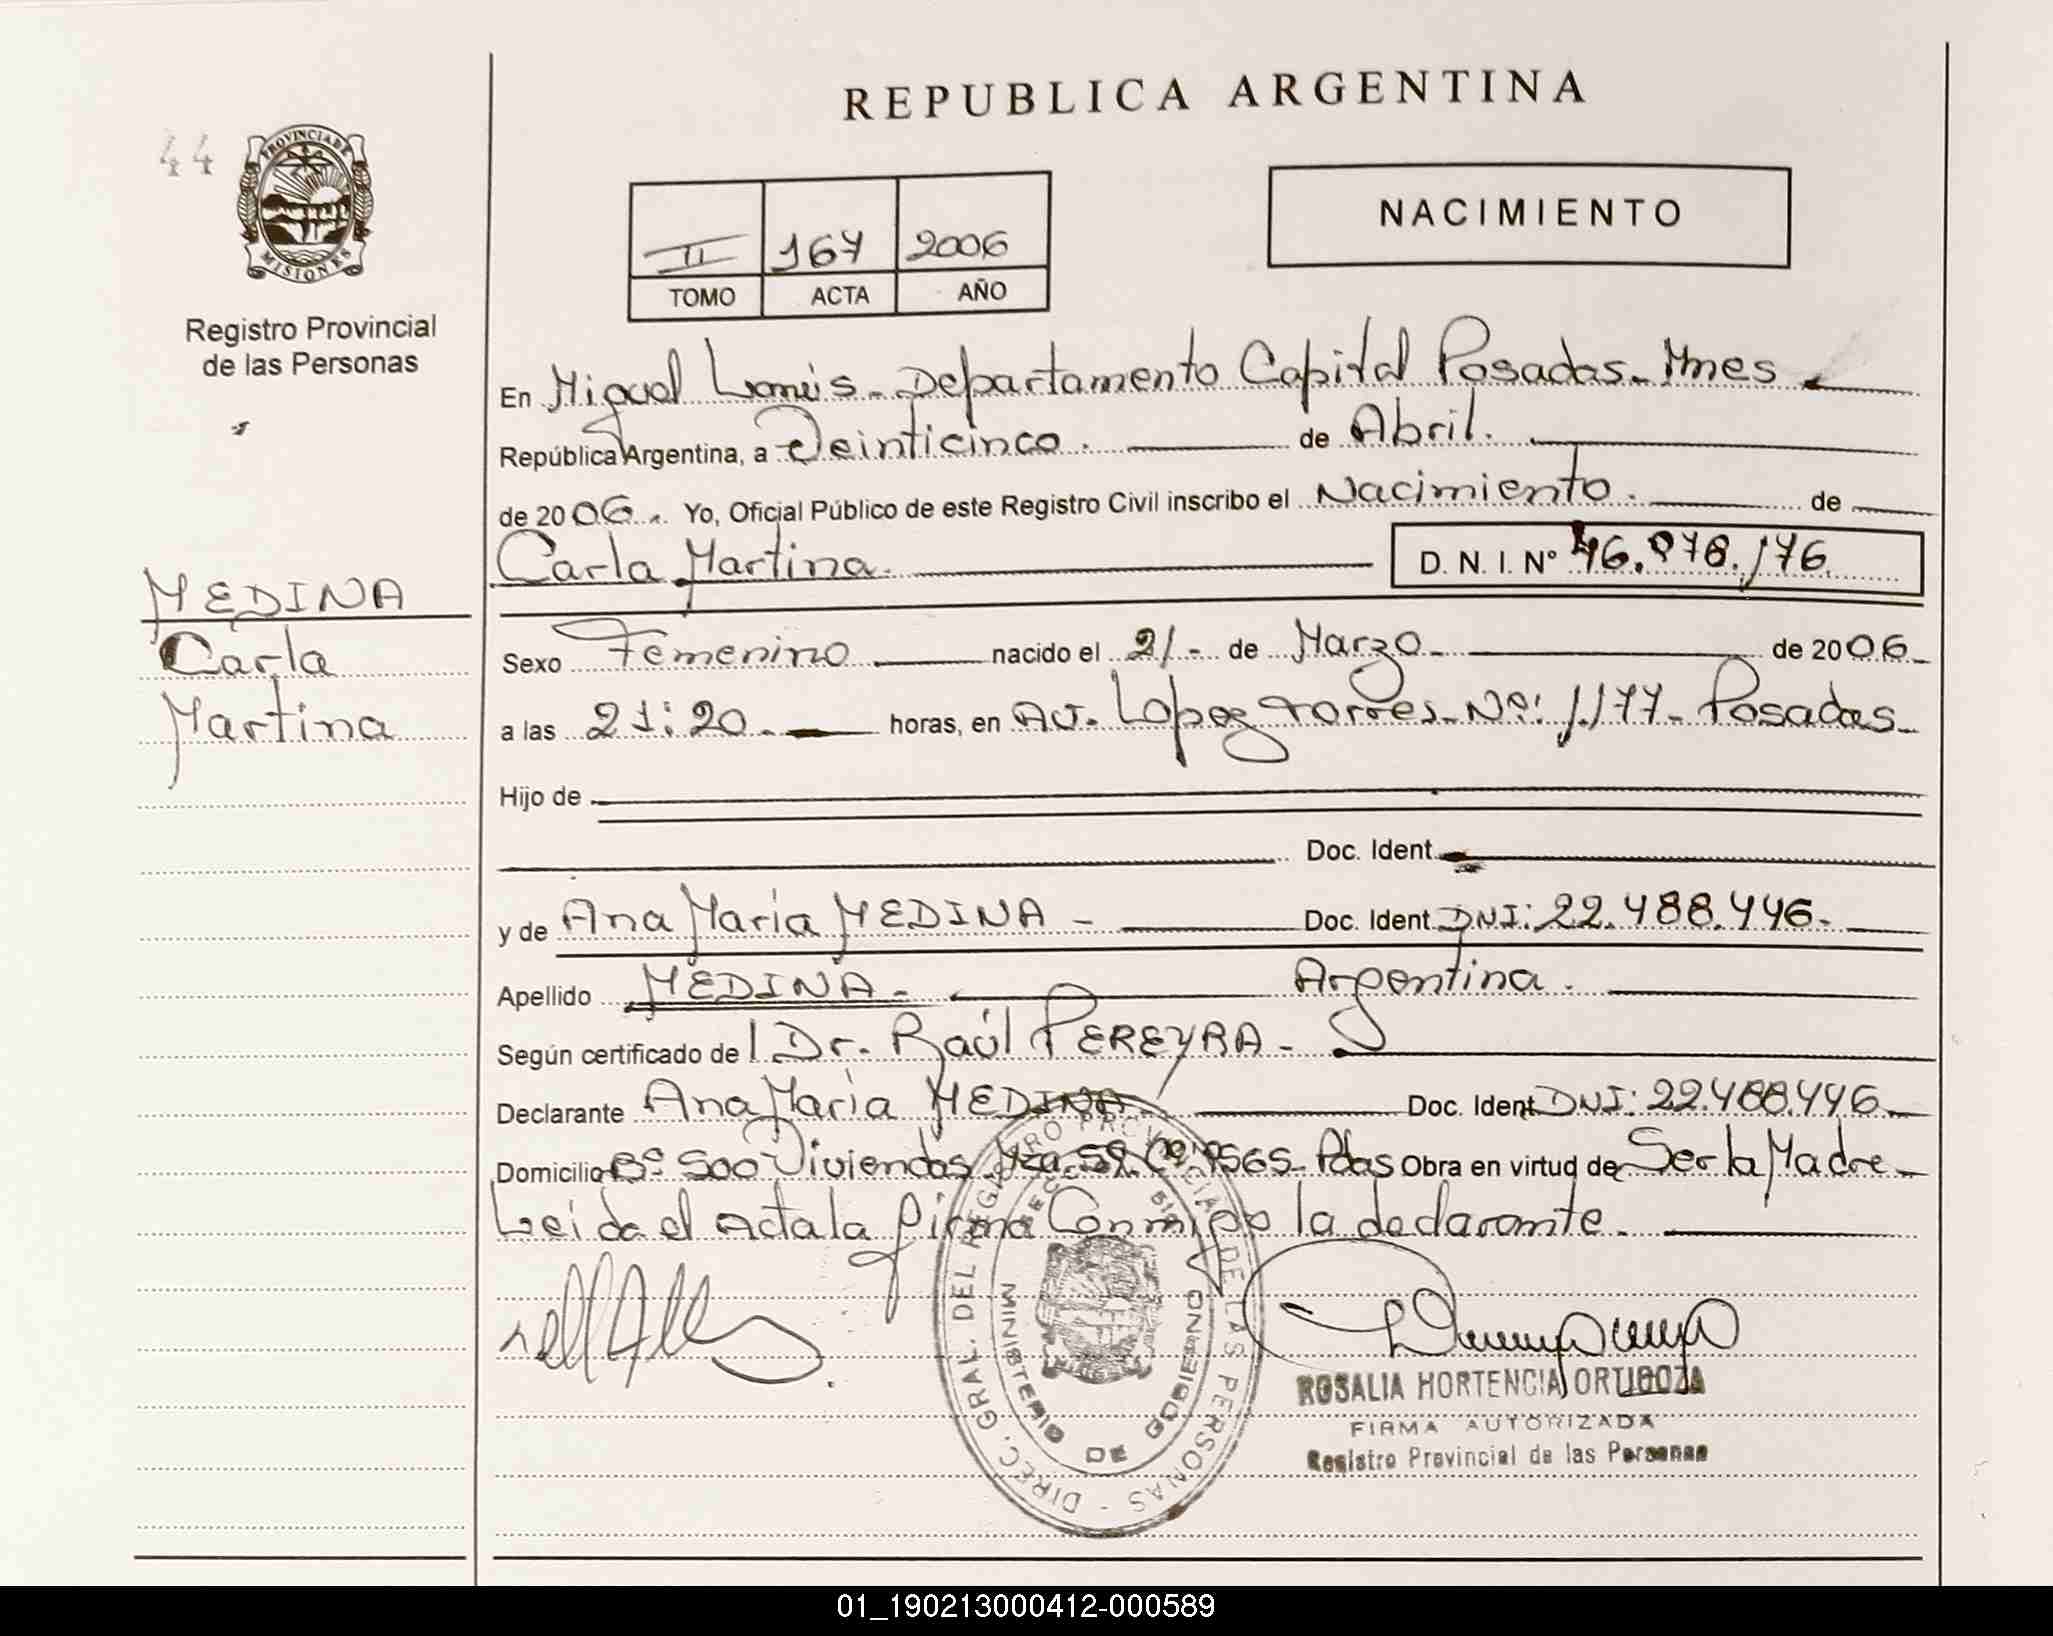 REPUBLICA ARGENTINA
44
PROVINCIA DE
MISIONES
Registro Provincial
de las Personas
II 167 2006
TOMO ACTA AÑO
NACIMIENTO
En Miguel Lanús - Departamento Capital Posadas - Mnes
República Argentina, a Veinticinco. de Abril.
de 2006. Yo, Oficial Público de este Registro Civil inscribo el Nacimiento. de
Carla Martina. D. N. I. Nº 46.878.176
MEDINA
Carla
Martina
Sexo Femenino nacido el 21- de Marzo - de 2006-
a las 21:20. horas, en Av. Lopez Torres - Nº: 1.177 - Posadas -
Hijo de
Doc. Ident.
y de Ana María MEDINA - Doc. Ident. DNI: 22.488.446.
Apellido MEDINA - Argentina.
Según certificado del Dr. Raúl PEREYRA -
Declarante Ana María MEDINA Doc. Ident. DNI: 22.488.446
Domicilio Bº 500 Viviendas Pdas Obra en virtud de Ser la Madre -
Leída el Acta la firma Conmigo la declarante.
DIREC. GRAL. DEL REGISTRO PROVINCIAL DE LAS PERSONAS -
MINISTERIO DE GOBIERNO
ROSALIA HORTENCIA ORTIGOZA
FIRMA AUTORIZADA
Registro Provincial de las Personas
01_190213000412-000589